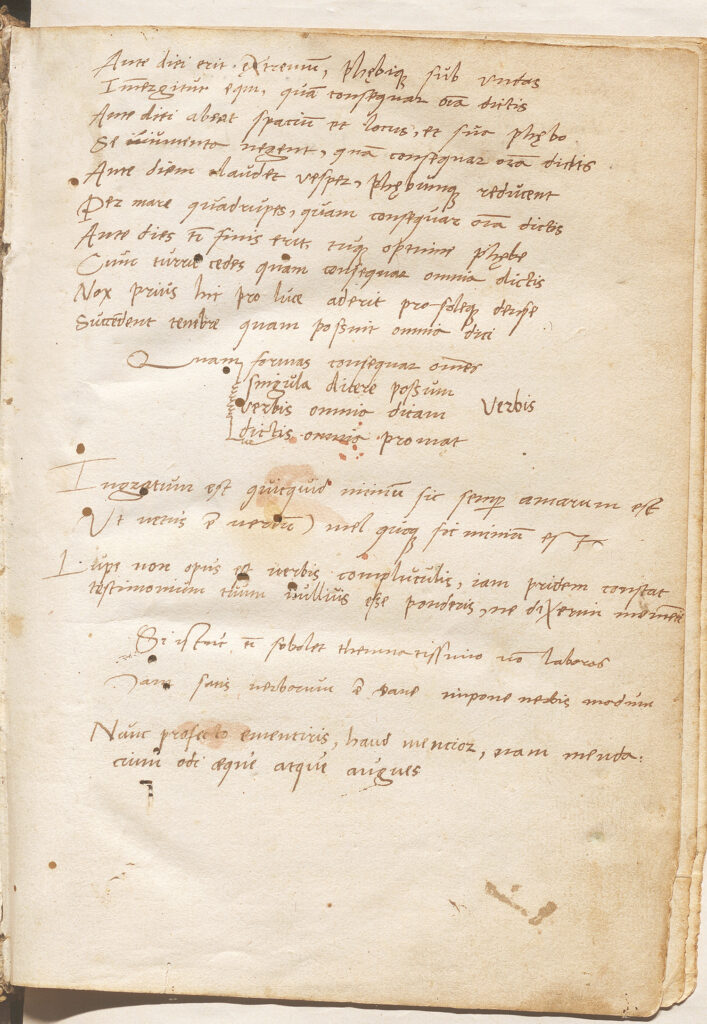 Ante diei erit extremū, phębiq sub undas
Immergitur equi, quā consequar oīa dictis
Ante diei abeat spacium et locus, et sua phębo
Se iumenta negent, quā consequar oīa dictis
Ante diem claudet vesper, phębumq reducent
Per mare quadrupes, quam consequar oīa dictis
Ante dies tī finis erit, tuq optime phębe
Cum turre cedes quam consequar omnia dictis
Nox prius hic pro luce aderit pro soleq dense
Succedent tenebrę quam possint omnia dici
Quam formas consequar omnes
singula dicere possum
verbis omnia dicam verbis
dictis omnia promat
Ingratum est quicquid nimiū sic semp amarum est
Ut vetus ē verbū) mel quoq si nimium est
Lupe non opus est verbis compluculis, iam pridem constat
testimonium tuum nullius esse ponderis, ne dixerim
Si istuc tī sobolet nō laboras
Iam satis verborum ē sane impone verbis modum
Nunc profecto ementiris, haud mentior, nam menda:
cium odi æque atque angues